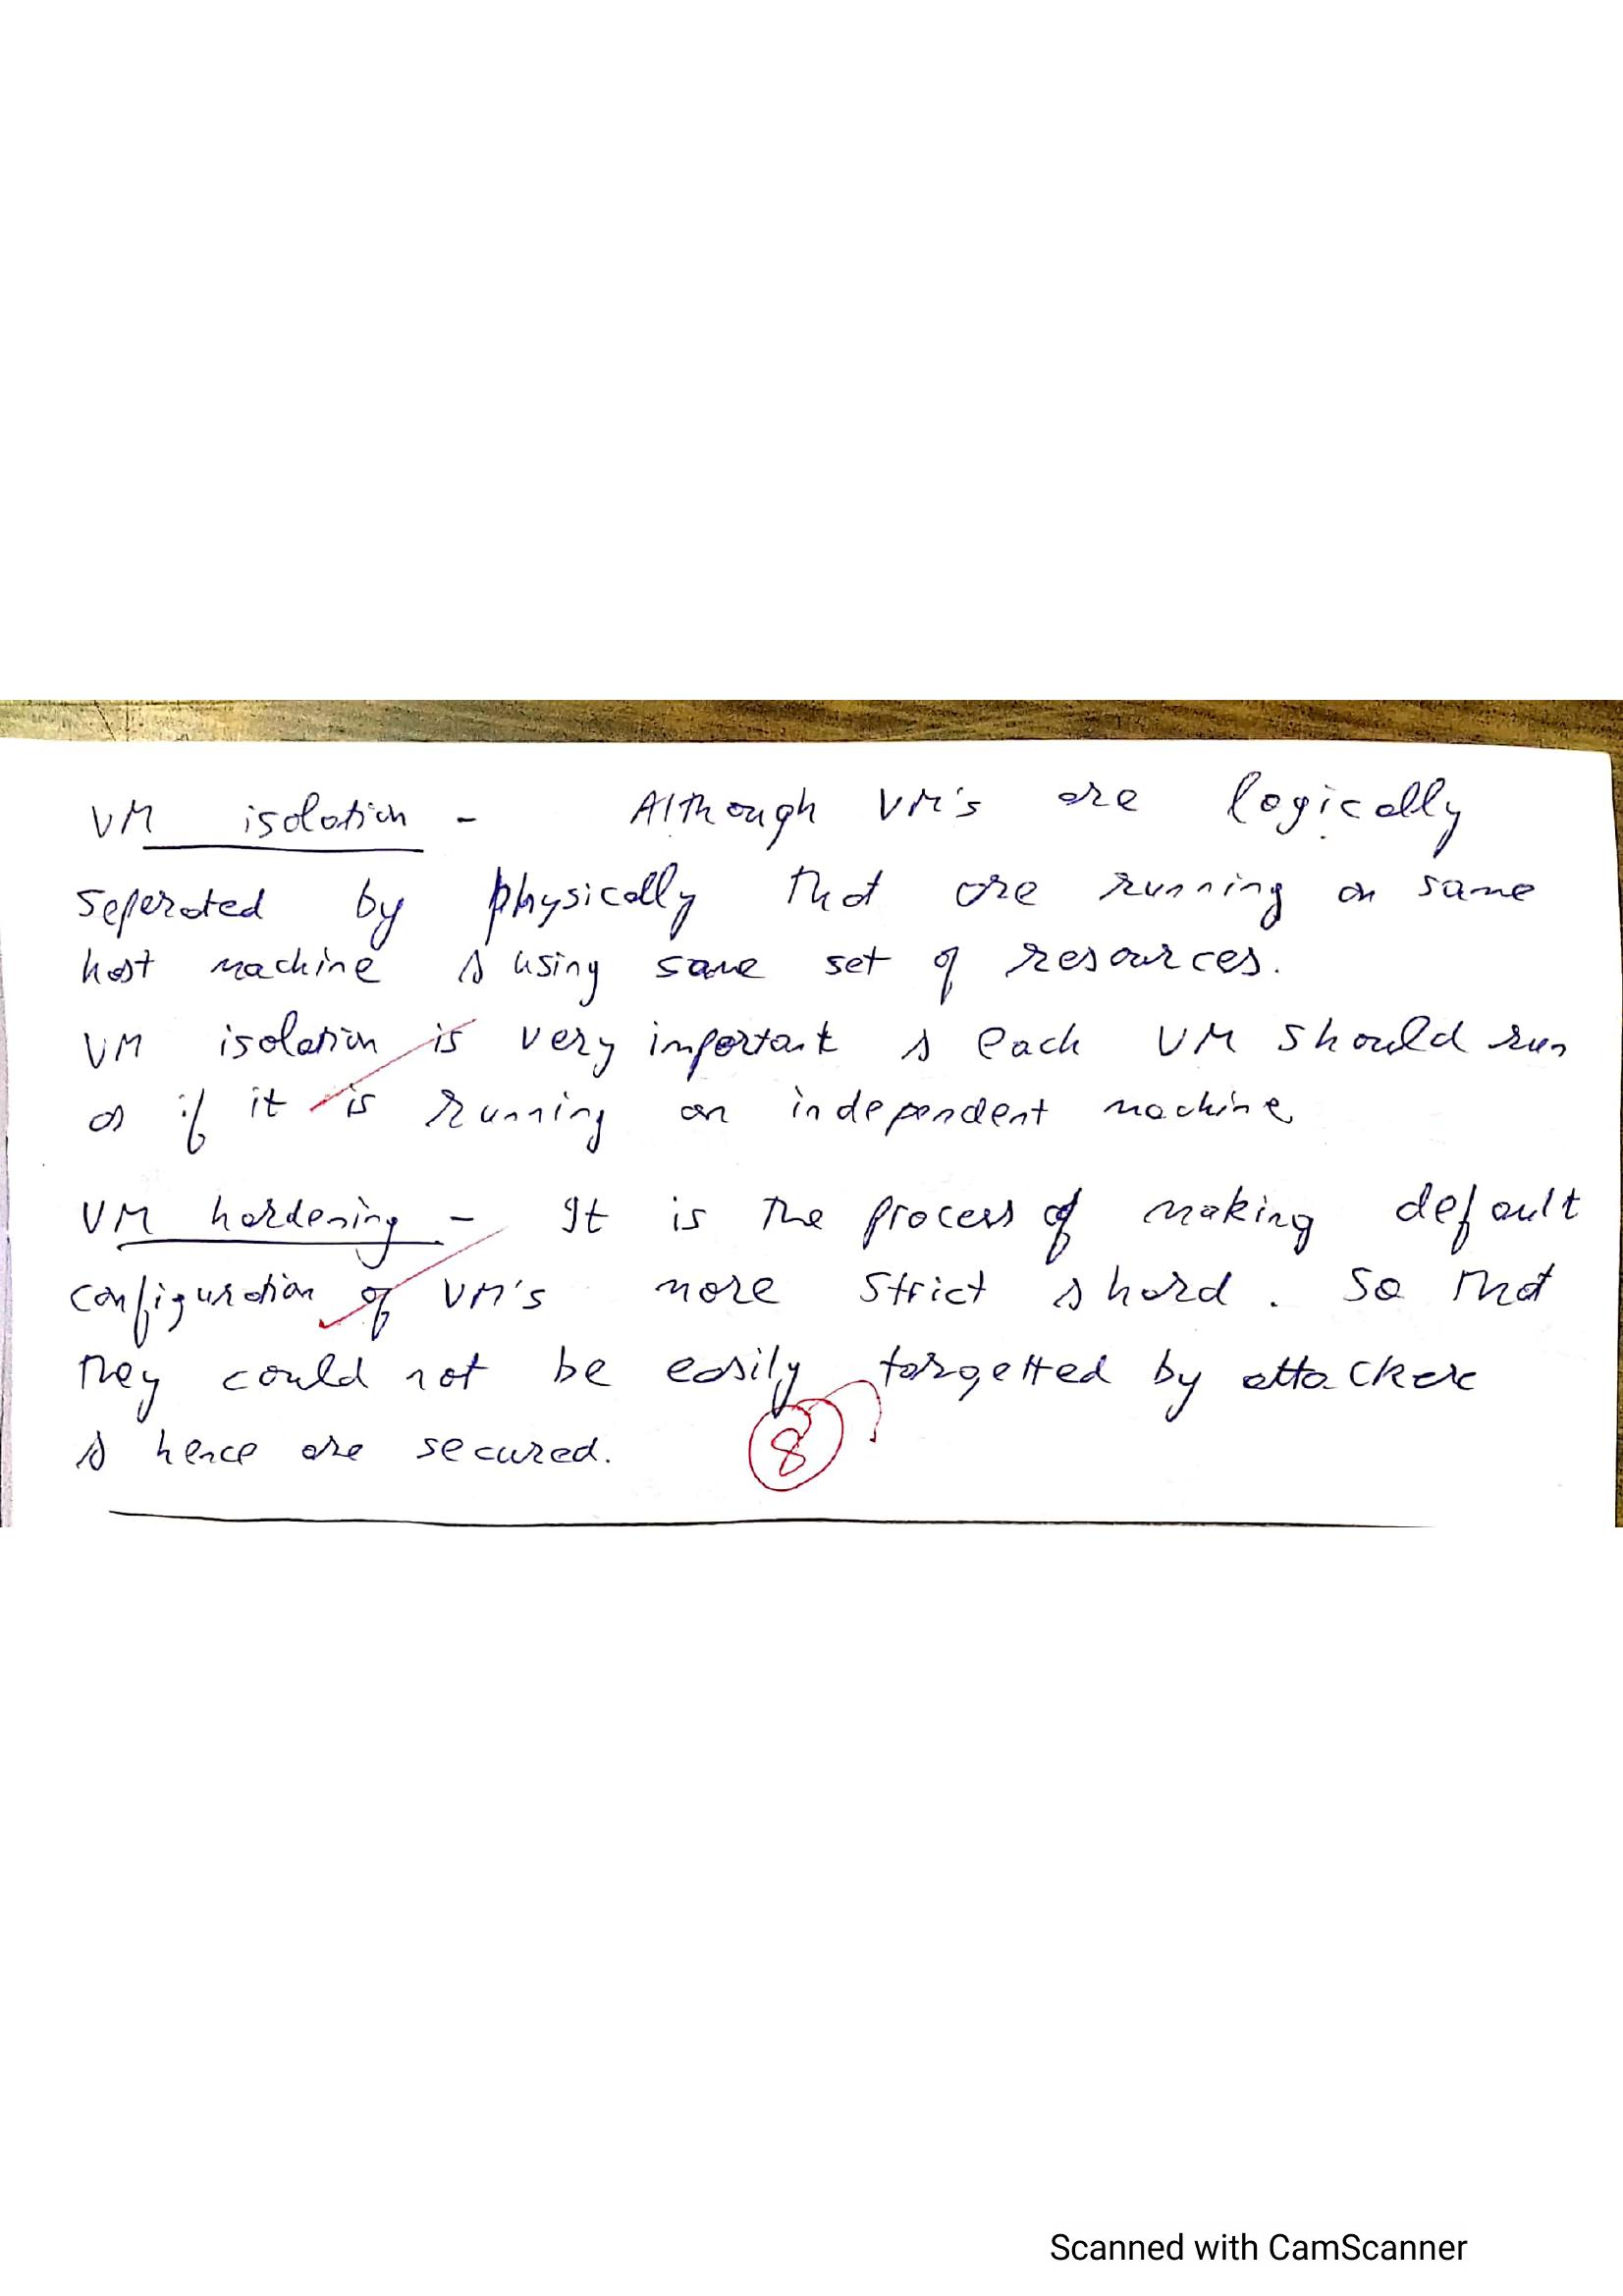 VM isolation - Although VM's are logically
seperated by physically that are running on same
host machine & using same set of resources.
VM isolation is very important & each VM should run
as if it is running on independent machine
VM hardening - It is the process of making default
configuration of VM's more strict & hard. So that
they could not be easily targetted by attacker
& hence are secured. 8
Scanned with CamScanner